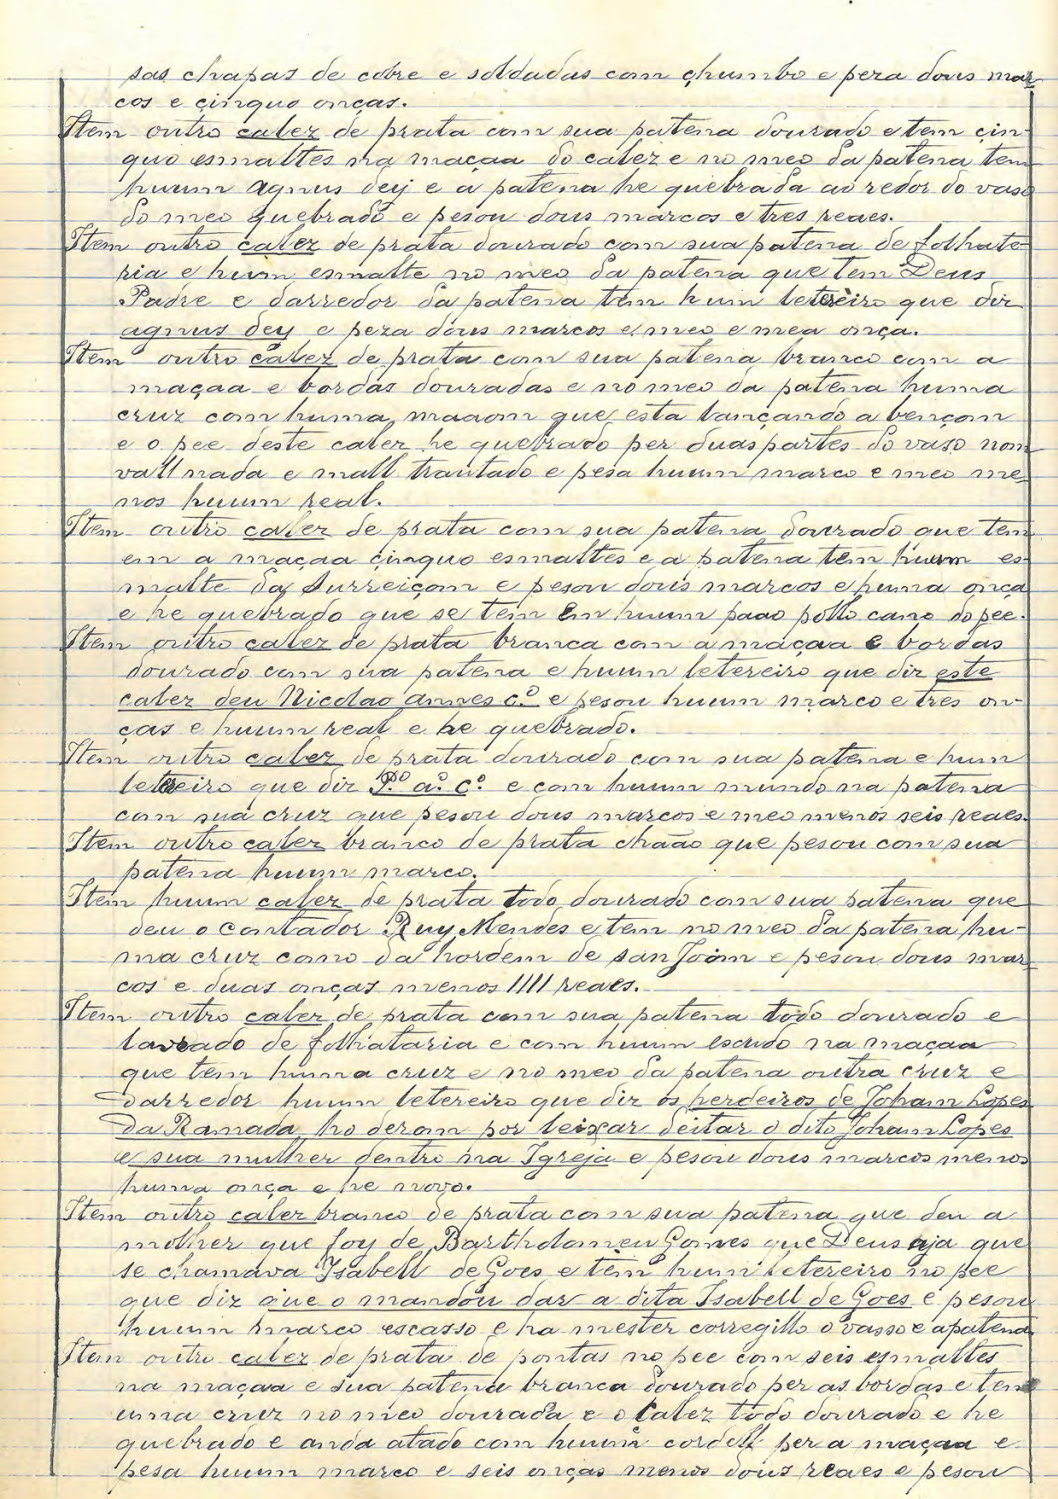 sas chapas de cobre e soldadas com chumbo e peza dous mar
cos e çinquo onças.
Item outro calez de prata com sua patena dourado e tem çin-
quo esmalltes na maçaa do calez e no meo da patena tem
huum agnus dej e a patena he quebrada ao redor do vaso
do meo quebrado e pesou dous marcos e tres reaes.
Item outro calez de prata dourado com sua patena de folhate-
ria e huum esmalte no meo da patena que tem Deus
Padre e darredor da patena tem hum letereiro que diz
agnus dey e peza dous marcos e meo e mea onça.
Item outro calez de prata com sua patena branco com a
maçaa e bordas douradas e no meo da patena huma
cruz com huma maaom que esta lançando a bençom
e o pee deste calez he quebrado per duas partes do vaso nom
vall nada e mall trautado e pesa huum marco e meo me-
nos huum real.
Item outro calez de prata com sua patena dourado que tem
em a maçaa çinquo esmalltes e a patena tem huum es-
malte da Surreiçom e pesou dous marcos e huma onça
e he quebrado que se tem em huum paao pollo cano do pee.
Item outro calez de prata branca com a maçaa e bordas
dourado com sua patena e huum letereiro que diz este
calez deu Nicolao annes c.º e pesou huum marco e tres on-
ças e huum real e he quebrado.
Item outro calez de prata dourado com sua patena e hum
letereiro que diz P.º a.º c.º e com huum mundo na patena
com sua cruz que pesou dous marcos e meo menos seis reaes.
Item outro calez branco de prata chaão que pesou com sua
patena huum marco.
Item huum calez de prata todo dourado com sua patena que
deu o contador Ruy Mendes e tem no meo da patena hu-
ma cruz como da hordem de san Joam e pesou dous mar
cos e duas onças menos IIII reaes.
Item outro calez de prata com sua patena todo dourado e
lavrado de folhataria e com huum escudo na maçaa
que tem huma cruz e no meo da patena outra cruz e
darredor huum letereiro que diz os herdeiros de Joham Lopes
da Ramada ho deram por leixar deitar o dito Joham Lopes
e sua mulher dentro na Igreja e pesou dous marcos menos
huma onça e he novo.
Item outro calez branco de prata com sua patena que deu a
molher que foy de Bartholomeu Gomes que Deus aja que
se chamava Isabell de Goes e tem huum letereiro no pee
que diz que o mandou dar a dita Isabell de Goes e pesou
huum marco escasso e ha mester corregillo o vasso e a patena
Item outro calez de prata de pontas no pee com seis esmalltes
na maçaa e sua patena branca dourado per as bordas e tem
uma cruz no meo dourada e o calez todo dourado e he
quebrado e anda atado com huum cordell per a maçaa e
pesa huum marco e seis onças menos dous reaes e pesou